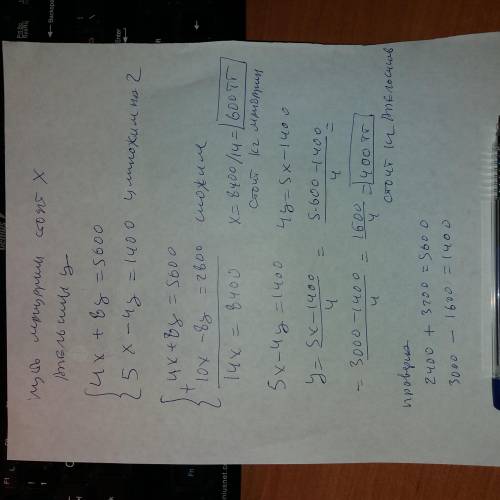 пусть мандарины стоят x
Апельсины y
4x + 8y = 5600
5x - 4y = 1400 умножим на 2
4x + 8y = 5600
+
10x - 8y = 2800 сложим
14x = 8400 x = 8400/14 = 600 тг
стоит кг мандарин
5x - 4y = 1400 4y = 5x - 1400
y = 5x - 1400 / 4 = 5·600 - 1400 / 4 =
= 3000 - 1400 / 4 = 1600 / 4 = 400 тг
стоит кг Апельсинов
проверка
2400 + 3200 = 5600
3000 - 1600 = 1400